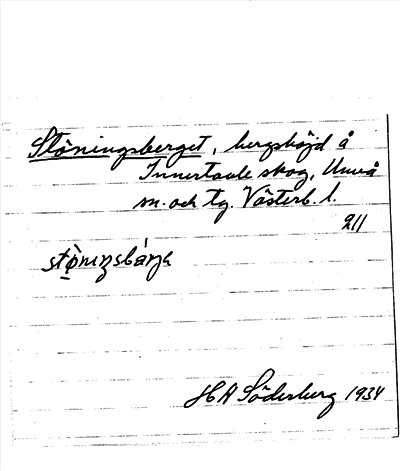 Stöningsberget, bergshöjd å
Innertavle skog, Umeå
sn. och tg. Västerb. l.
211
HA Söderberg 1934